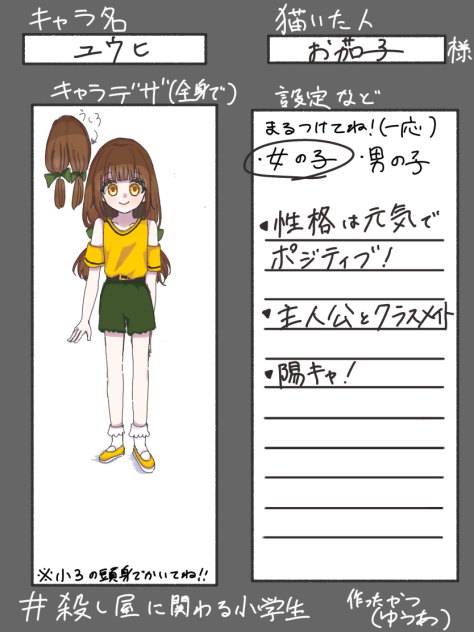 キャラ名
ユウヒ
描いた人
お茄子 様
キャラデザ(全身で)
うしろ
※小3の頭身でかいてね!!
設定など
まるつけてね!(一応)
・女の子 ・男の子
・性格は元気で
ポジティブ!
・主人公とクラスメイト
・陽キャ!
#殺し屋に関わる小学生
作ったかつ
(ゆうわ)